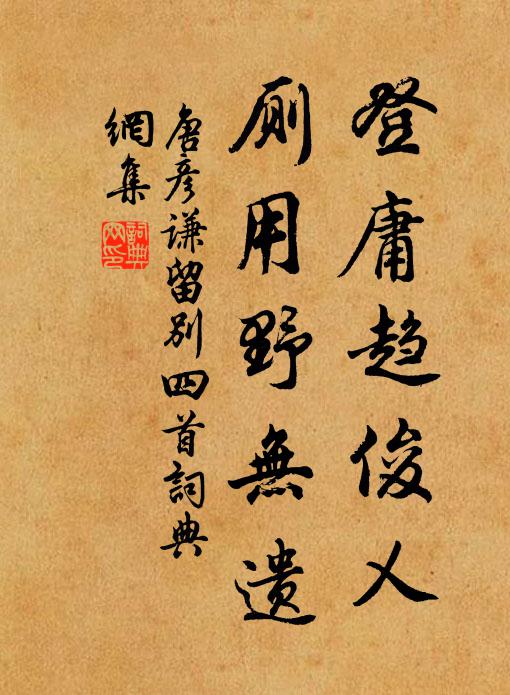 登庸趋俊乂
厕用野無遗
唐彦谦留别四首詞典
網集
詞典
网印